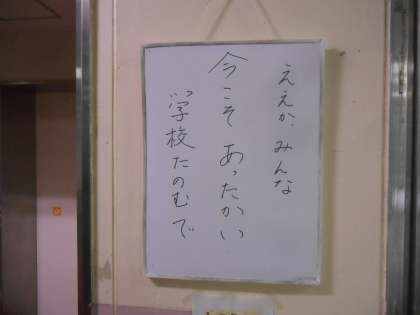 ええか、みんな
今こそ あったかい
学校たのむで